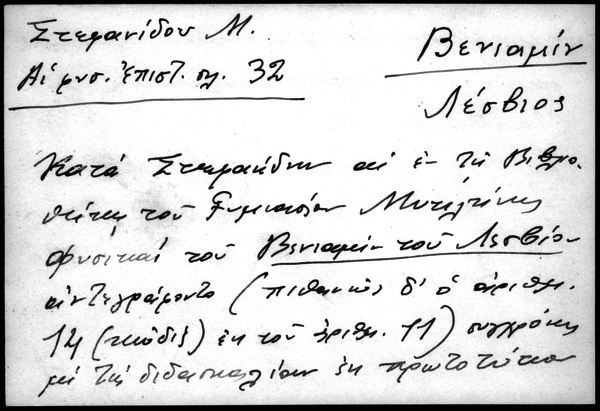 Στεφανίδου Μ.
Αἱ φυσ. ἐπιστ. σλ. 32
Βενιαμίν
Λέσβιος
Κατὰ Στεφανίδην αἱ ἐν τῇ Βιβλιο-
θήκῃ τοῦ Γυμνασίου Μυτιλήνης
φυσικαί τοῦ Βενιαμίν τοῦ Λεσβίου
ἀντεγράφοντο (πιθανῶς δ' ὁ ἀριθμ.
14 (κώδιξ) ἐκ τοῦ ἀριθμ. 11) συγχρόνως
μὲ τὴν διδασκαλίαν ἐκ πρωτοτύπου